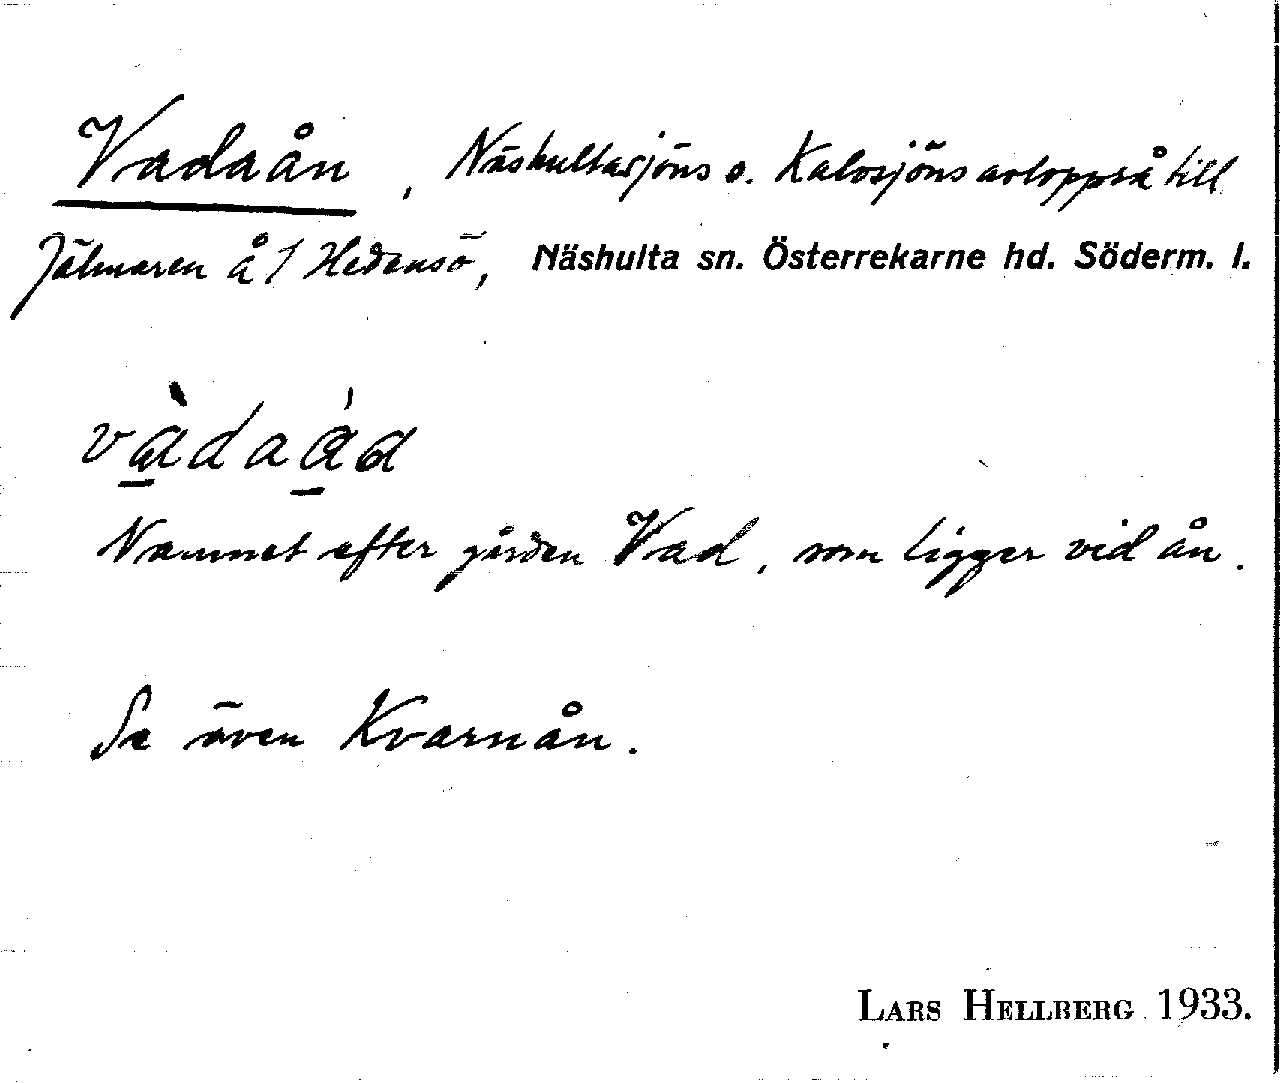 Vadaån, Näshultasjöns o. Kalvsjöns avloppså till
Jälmaren å / Hedensö, Näshulta sn. Österrekarne hd. Söderm. l.
Namnet efter gården Vad, som ligger vid ån.
Se även Kvarnån.
LARS HELLBERG 1933.